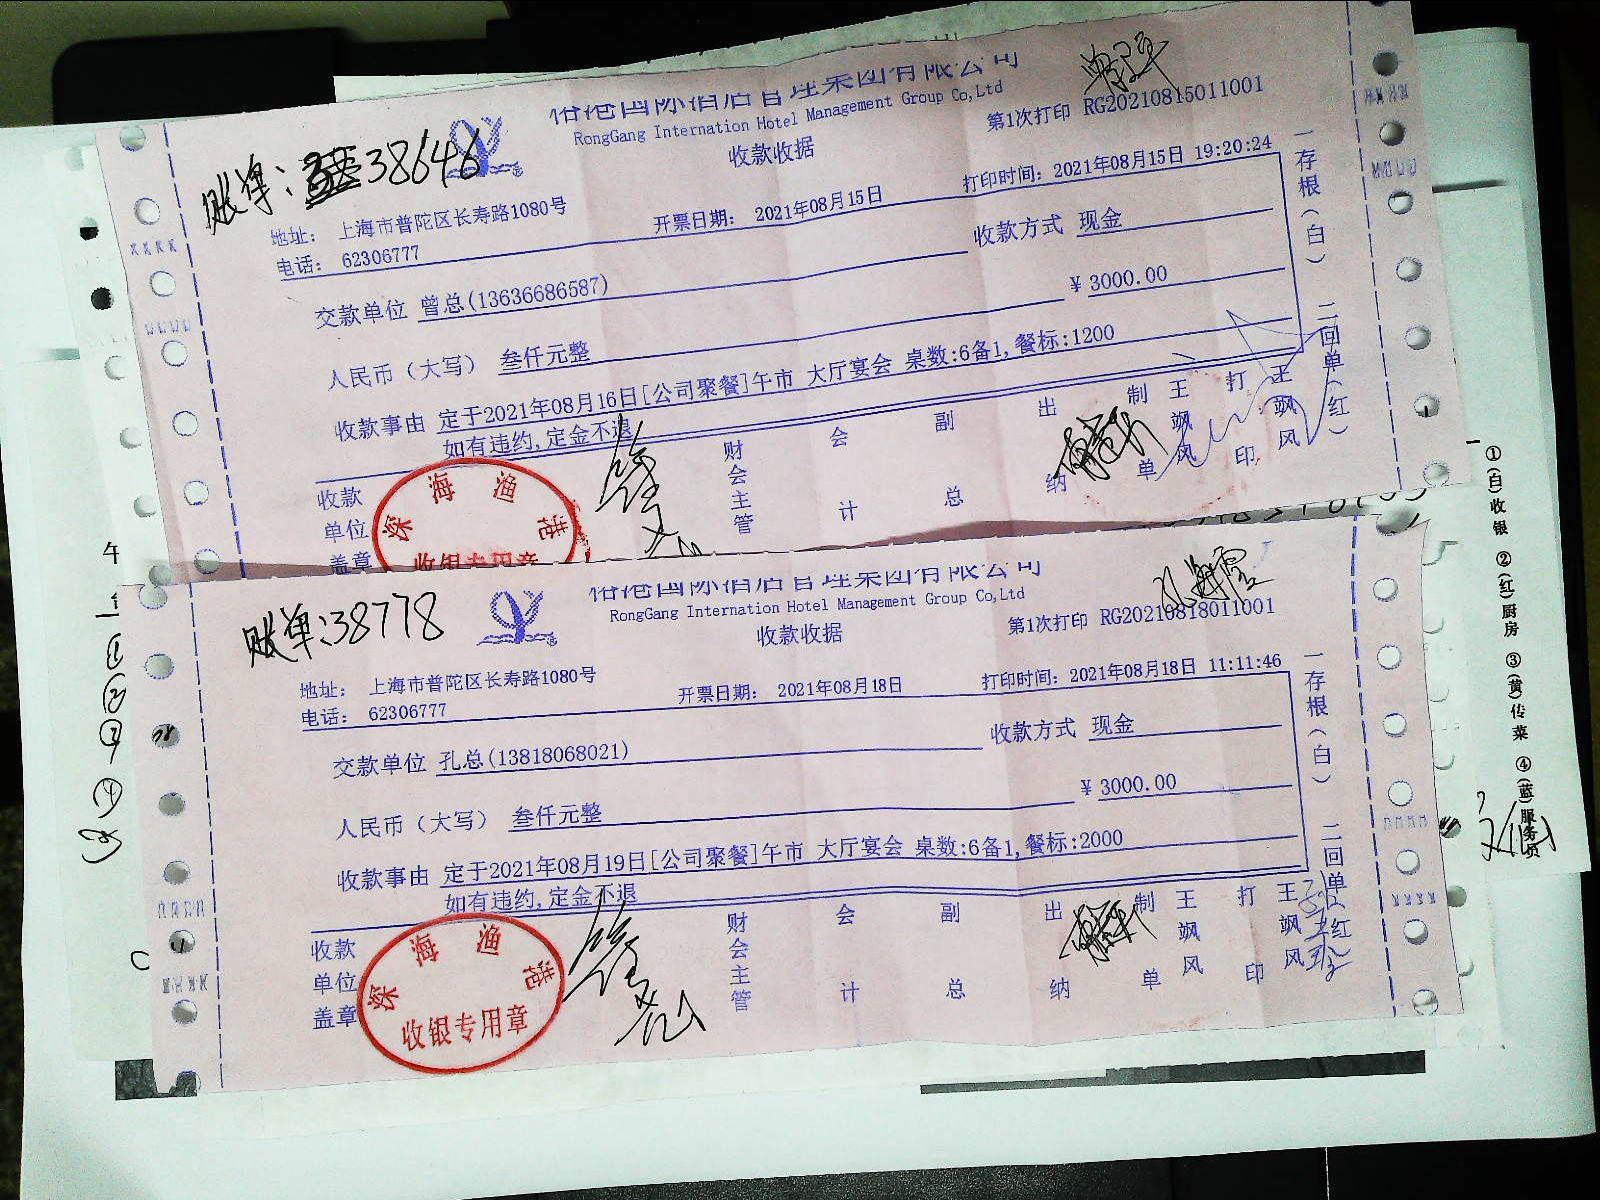 国际酒店管理集团有限公司
RongGang Internation Hotel Management Group Co,Ltd
收款收据
第1次打印 RG20210815011001
账单: 38646
地址: 上海市普陀区长寿路1080号
电话: 62306777
开票日期: 2021年08月15日
打印时间: 2021年08月15日 19:20:24
交款单位 曾总(13636686587)
收款方式 现金
人民币（大写） 叁仟元整
¥ 3000.00
收款事由 定于2021年08月16日[公司聚餐]午市 大厅宴会 桌数:6备1,餐标:1200
如有违约,定金不退
收款单位盖章
深海渔港
收银专用章
财会主管
会计
副总
出纳
制单
王飒风
打印
王飒风
一存根(白) 二回单(红)
国际酒店管理集团有限公司
RongGang Internation Hotel Management Group Co,Ltd
收款收据
第1次打印 RG20210818011001
账单:38778
地址: 上海市普陀区长寿路1080号
电话: 62306777
开票日期: 2021年08月18日
打印时间: 2021年08月18日 11:11:46
交款单位 孔总(13818068021)
收款方式 现金
人民币（大写） 叁仟元整
¥ 3000.00
收款事由 定于2021年08月19日[公司聚餐]午市 大厅宴会 桌数:6备1,餐标:2000
如有违约,定金不退
收款单位盖章
深海渔港
收银专用章
财会主管
会计
副总
出纳
制单
王飒风
打印
王飒风
一存根(白) 二回单(红)
①(白)收银 ②(红)厨房 ③(黄)传菜 ④(蓝)服务员
午